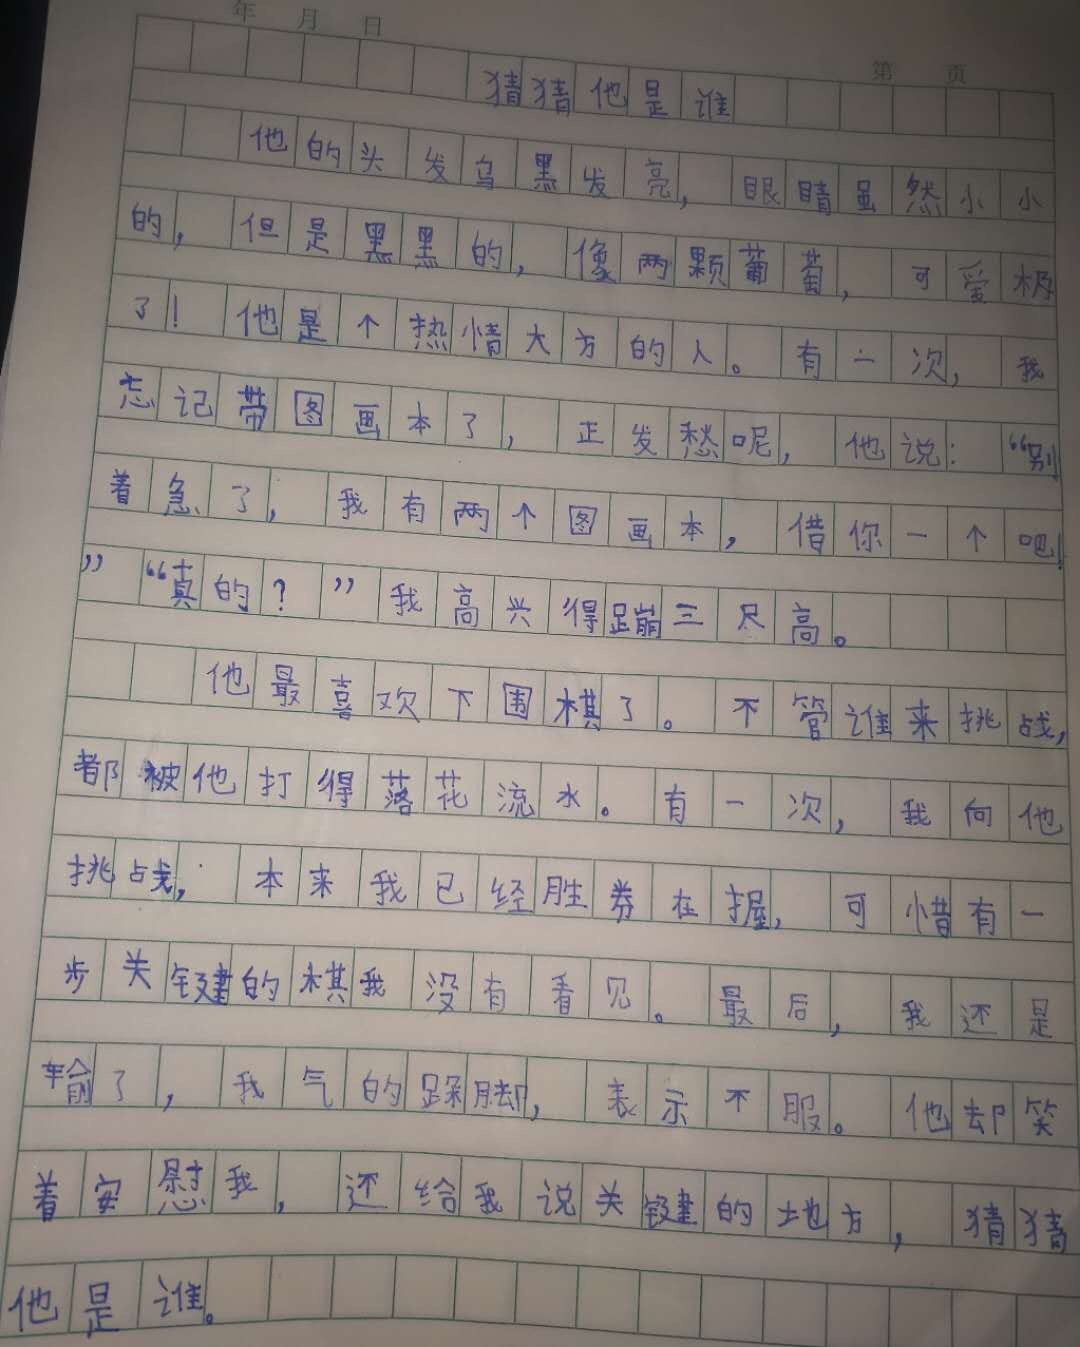 年 月 日
第 页
猜猜他是谁
他的头发乌黑发亮，眼睛虽然小小
的，但是黑黑的，像两颗葡萄，可爱极
了！他是个热情大方的人。有一次，我
忘记带图画本了，正发愁呢，他说：“别
着急了，我有两个图画本，借你一个吧！
”“真的？”我高兴得蹦三尺高。
他最喜欢下围棋了。不管谁来挑战，
都被他打得落花流水。有一次，我向他
挑战，本来我已经胜券在握，可惜有一
步关键的棋我没有看见。最后，我还是
输了，我气的跺脚，表示不服。他却笑
着安慰我，还给我说关键的地方，猜猜
他是谁。